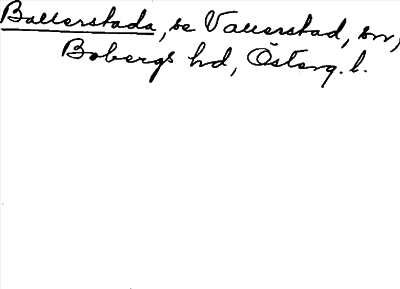 Ballerstada, se Vallerstad, sn,
Bobergs hd, Österg. l.